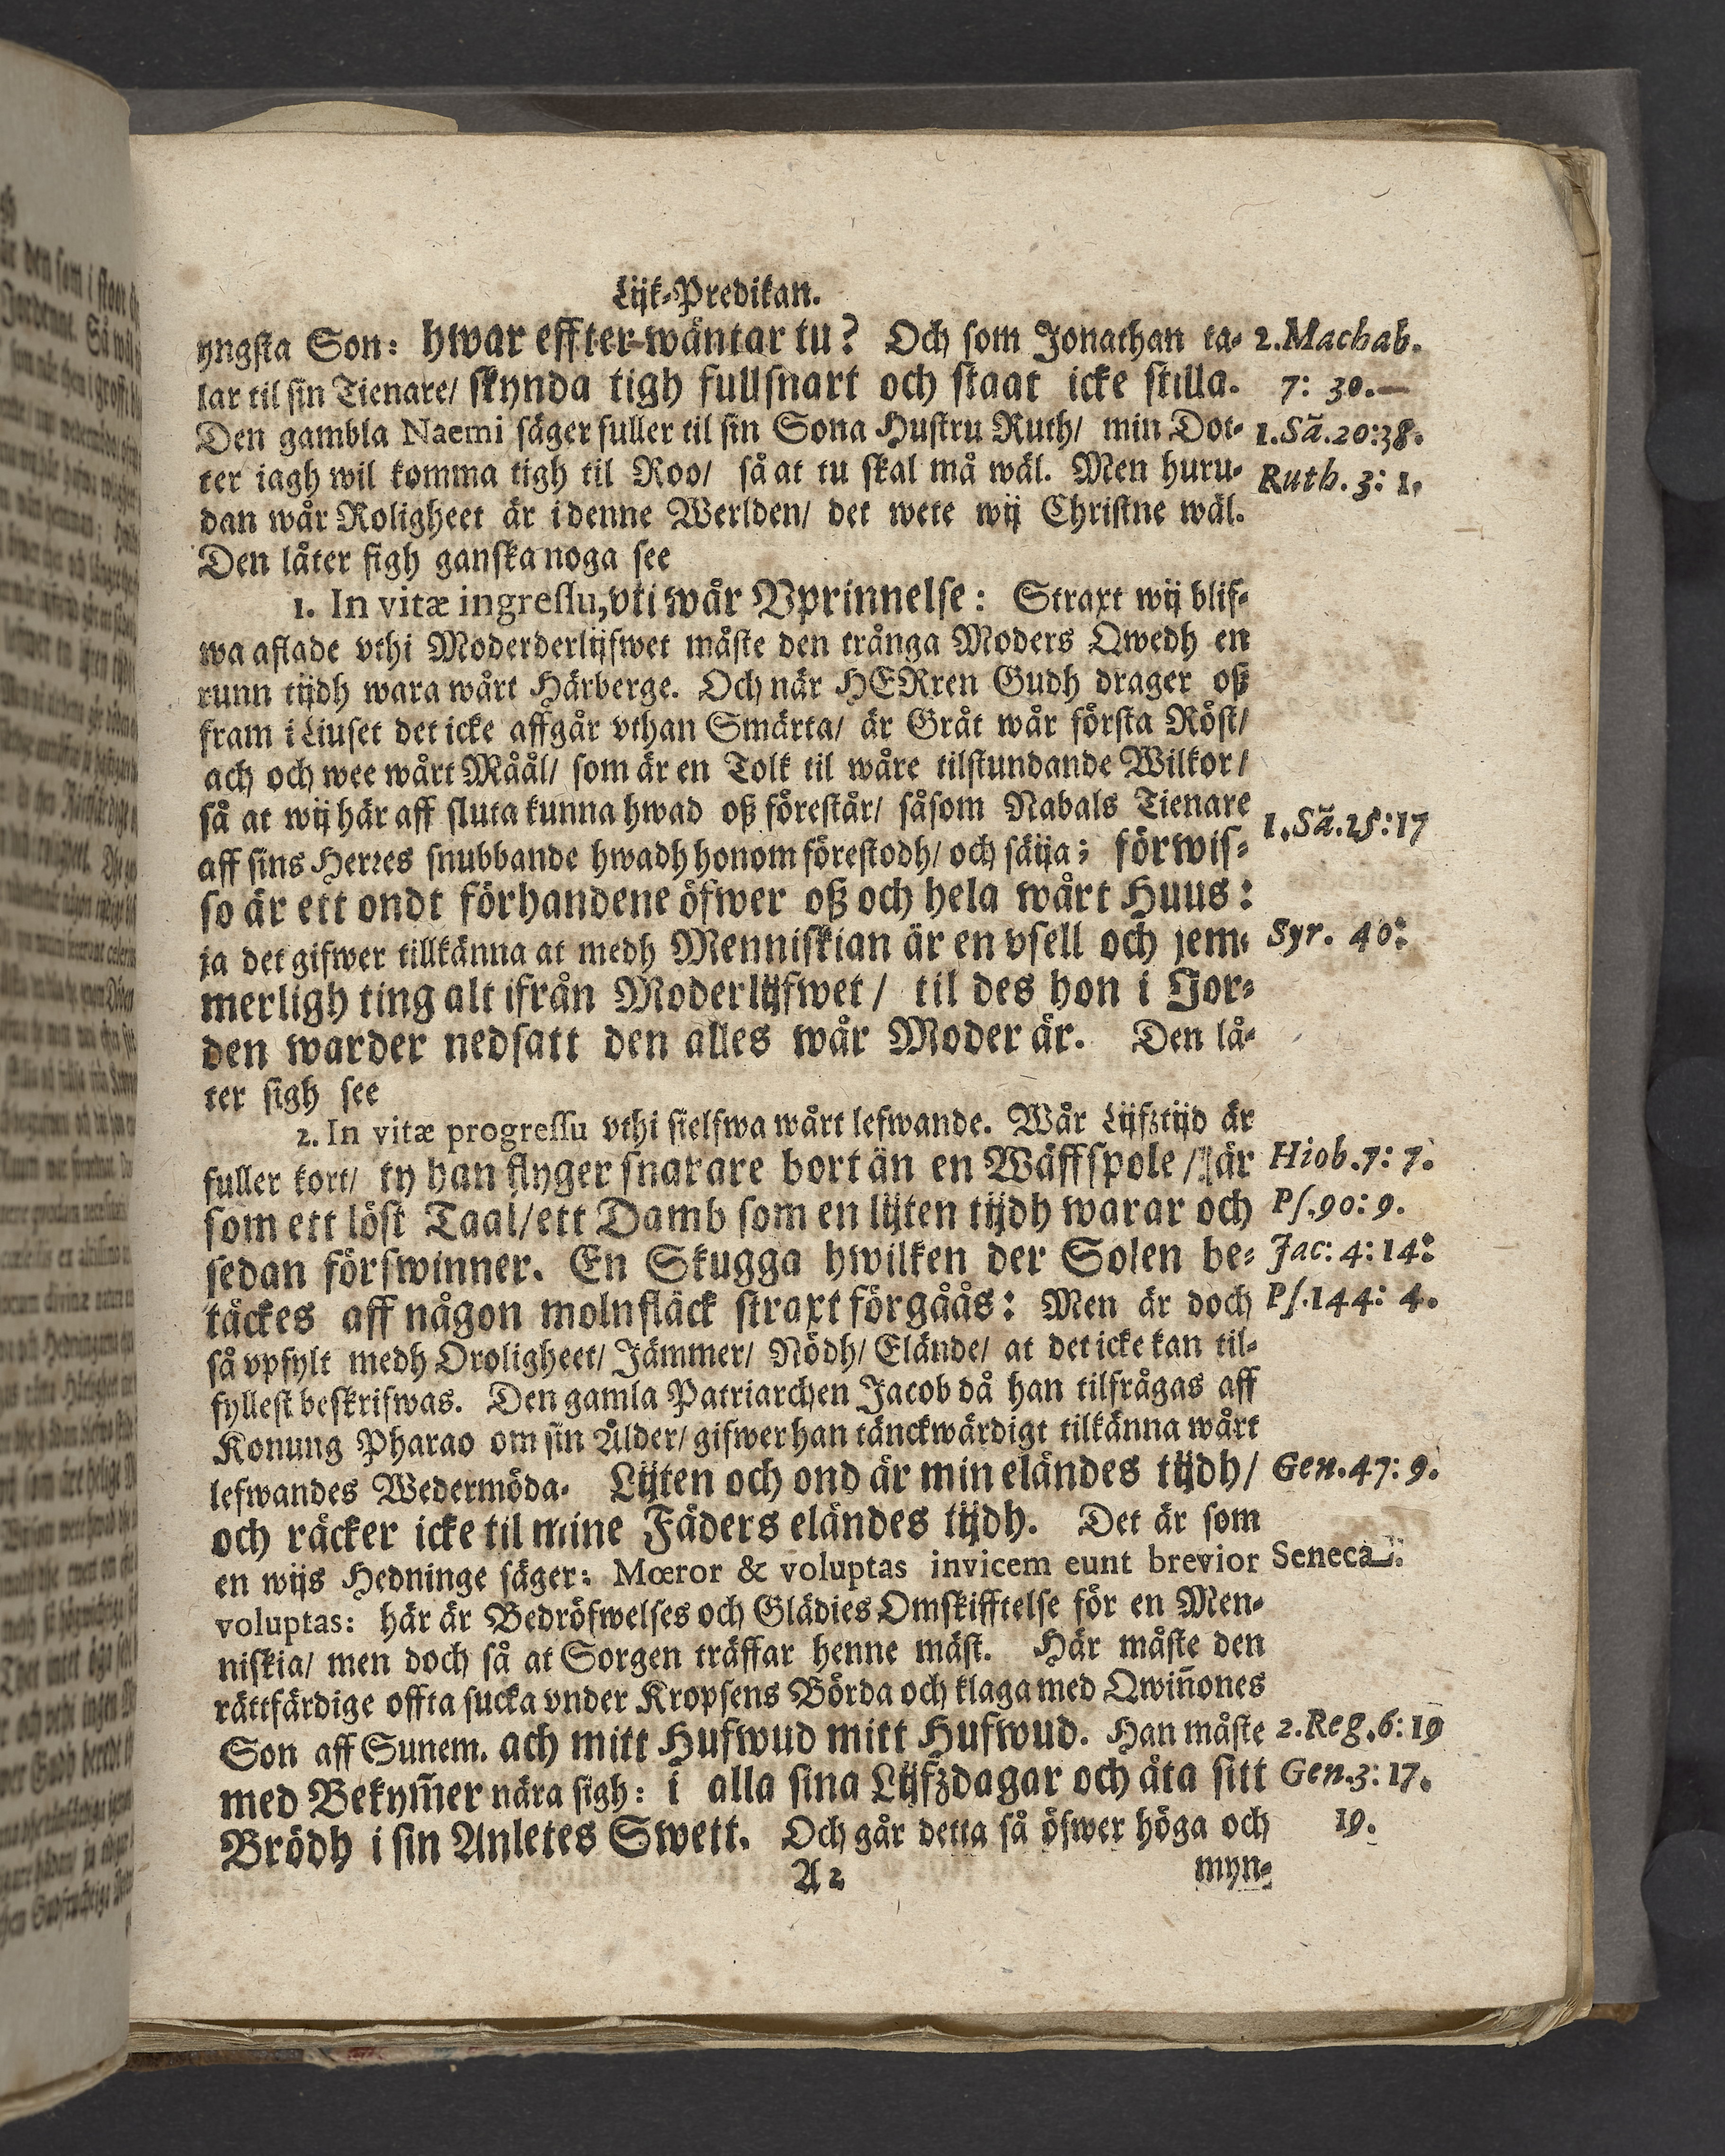 Lijk-Predikan.
yngsta Son: hwar effter-wäntar tu? Och som Jonathan ta- 2.Machab.
lar til sin Tienare/ skynda tigh fullsnart och staat icke stilla. 7: 30.
Den gambla Naemi säger fuller til sin Sona Hustru Ruth/ min Dot- 1.Sã.20:38.
ter iagh wil komma tigh til Roo/ så at tu skal må wäl. Men huru- Ruth. 3: 1.
dan wår Roligheet är i denne Werlden/ det wete wij Christne wäl.
Den låter sigh ganska noga see
1. In vitæ ingressu, vti wår Vprinnelse: Straxt wij blif-
wa aflade vthi Moderderlijfwet måste den trånga Moders Qwedh en
runn tijdh wara wårt Härberge. Och när HERren Gudh drager oß
fram i Liuset det icke affgår vthan Smärta/ är Gråt wår första Röst/
ach och wee wårt Måål/ som är en Tolk til wåre tilstundande Wilkor/
så at wij här aff sluta kunna hwad oß förestår/ såsom Nabals Tienare
aff sins Herres snubbande hwadh honom förestodh/ och säija; förwis- 1.Sã.25:17
so är ett ondt förhandene öfwer oß och hela wårt Huus:
ja det gifwer tillkänna at medh Menniskian är en vsell och jem- Syr. 40:
merligh ting alt ifrån Moderlijfwet/ til des hon i Jor-
den warder nedsatt den alles wår Moder är. Den lå-
ter sigh see
2. In vitæ progressu vthi sielfwa wårt lefwande. Wår Lijfztijd är
fuller kort/ ty han flyger snarare bort än en Wäffspole/ är Hiob.7: 7.
som ett löst Taal/ett Damb som en lijten tijdh warar och Ps.90: 9.
sedan förswinner. En Skugga hwilken der Solen be- Jac: 4: 14:
täckes aff någon molnfläck straxt förgåås: Men är doch Ps.144: 4.
så vpfylt medh Oroligheet/ Jämmer/ Nödh/ Elände/ at det icke kan til-
fyllest beskrifwas. Den gamla Patriarchen Jacob då han tilfrågas aff
Konung Pharao om sin Ålder/ gifwer han tänckwärdigt tilkänna wårt
lefwandes Wedermöda. Lijten och ond är min eländes tijdh/ Gen.47: 9.
och räcker icke til mine Fäders eländes tijdh. Det är som
en wijs Hedninge säger: Mœror & voluptas invicem eunt brevior Seneca.
voluptas: här är Bedröfwelses och Glädies Omskifftelse för en Men-
niskia/ men doch så at Sorgen träffar henne mäst. Här måste den
rättfärdige offta sucka vnder Kropsens Börda och klaga med Qwiñones
Son aff Sunem. ach mitt Hufwud mitt Hufwud. Han måste 2.Reg.6: 19
med Bekym̃er nära sigh: i alla sina Lijfzdagar och äta sitt Gen.3: 17.
Brödh i sin Anletes Swett. Och går detta så öfwer höga och 19.
A 2 myn-